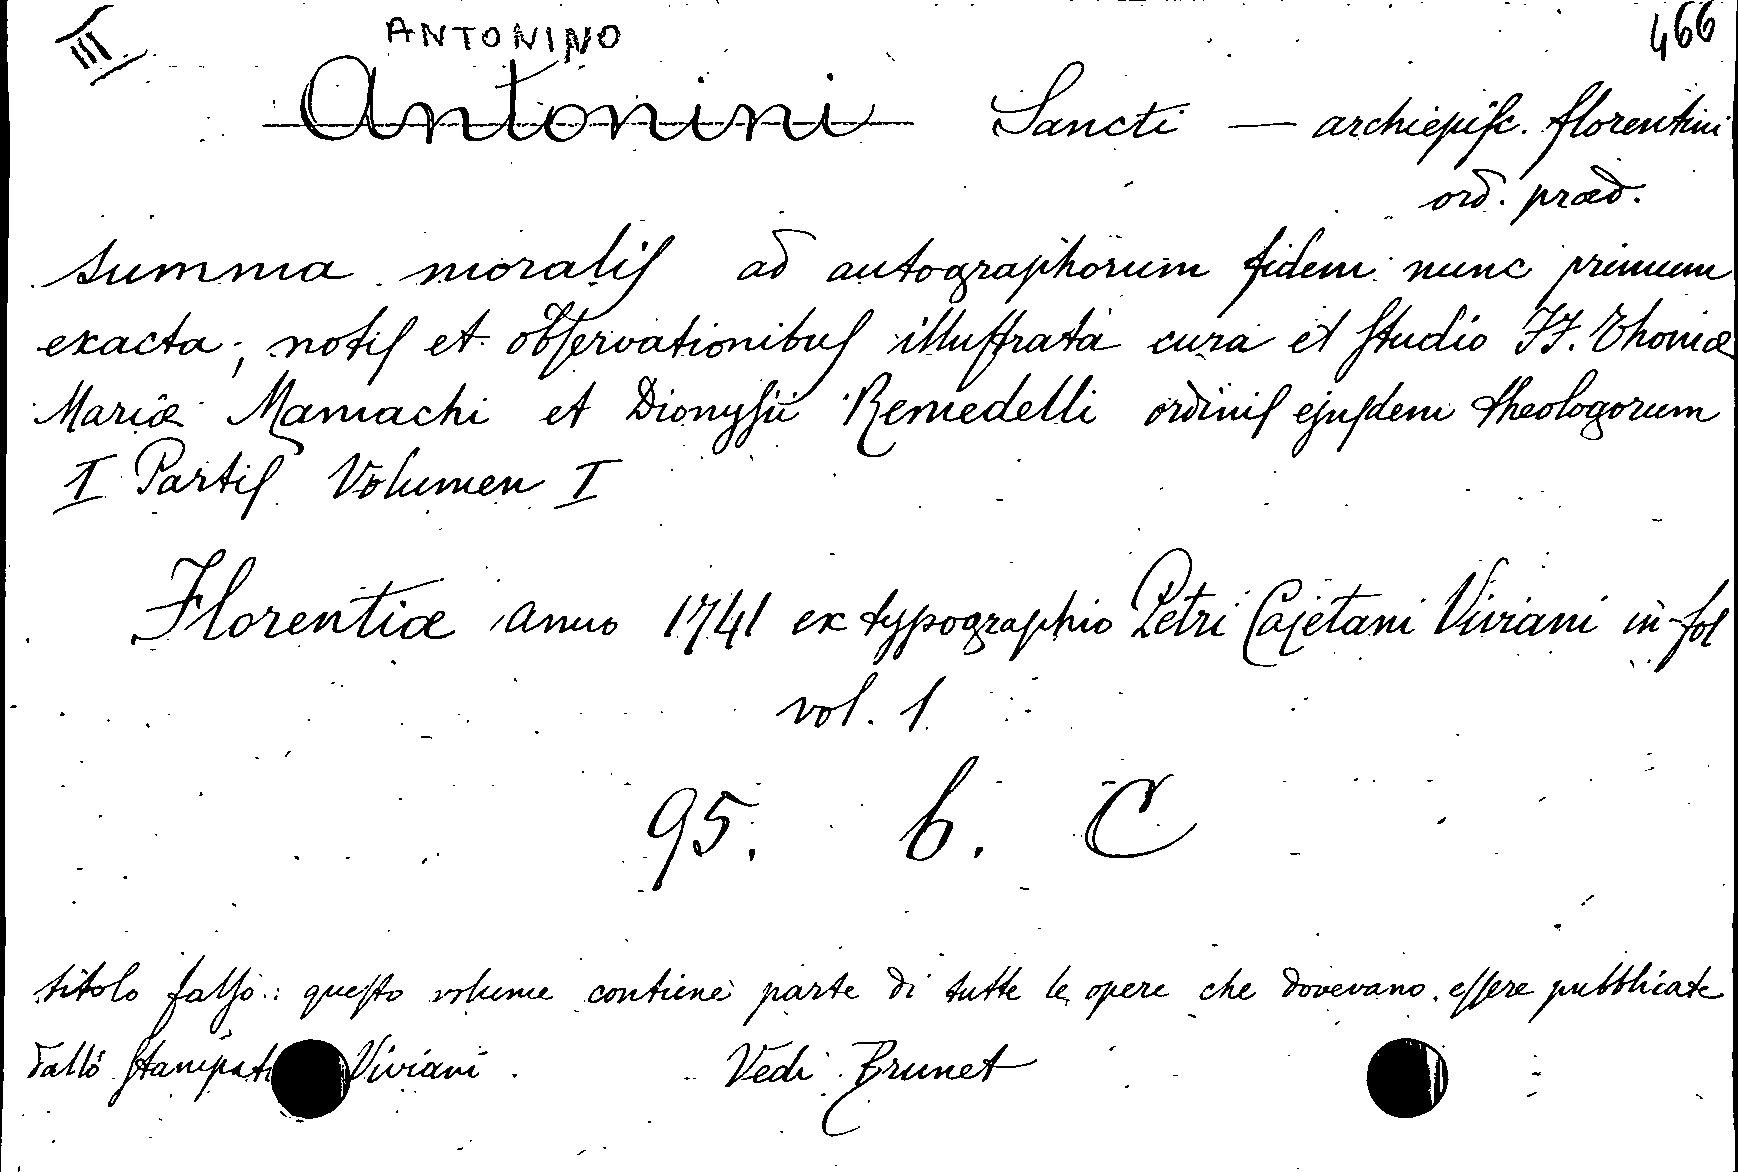 III
466
ANTONINO
Antonini Sancti — archiepisc. florentini
ord. præd.
summa moralis ad autographorum fidem nunc primum
exacta; notis et observationibus illustrata cura et studio FF. Thomæ
Mariæ Mamachi et Dionysii Remedelli ordinis ejusdem theologorum
I Partis Volumen I
Florentiæ anno 1741 ex typographio Petri Cajetani Viviani in-fol
vol. 1
95. 6. C
titolo falso: questo volume contiene parte di tutte le opere che dovevano essere pubblicate
dallo Viviani. Vedi Brunet